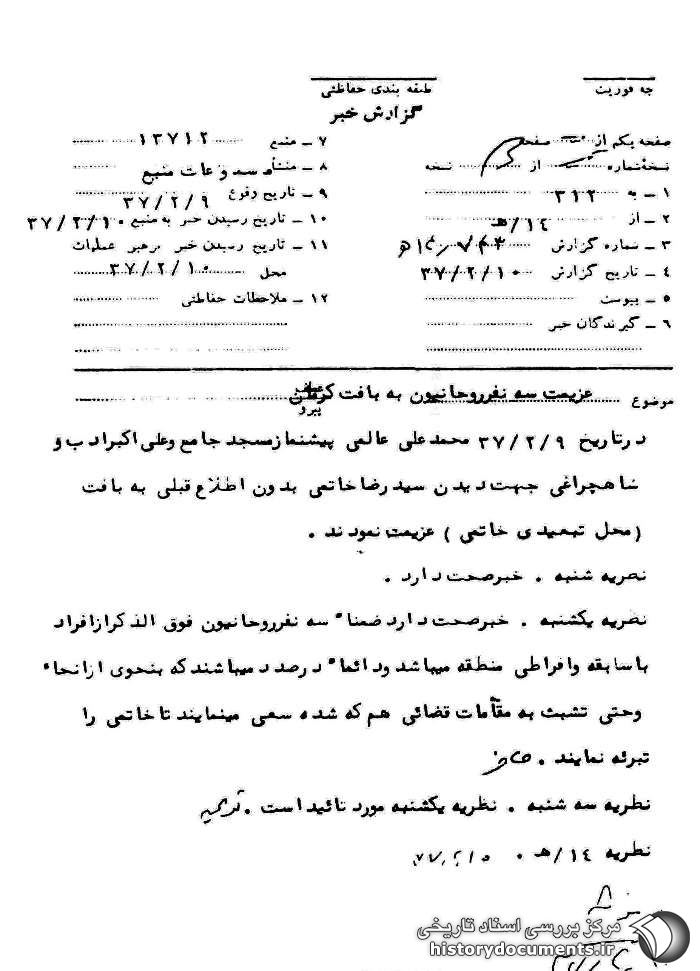 چه فوریت
طبقه بندی حفاظتی
گزارش خبر
صفحه یکم از صفحه
نسخه شماره از نسخه
۱ ـ به ۳۱۲
۲ ـ از ۱۴/هـ
۳ ـ شماره گزارش
۴ ـ تاریخ گزارش ۳۷/۲/۱۰
۵ ـ پیوست
۶ ـ گیرندگان خبر
۷ ـ منبع ۱۳۷۱۲
۸ ـ منشأ مسموعات منبع
۹ ـ تاریخ وقوع ۳۷/۲/۹
۱۰ ـ تاریخ رسیدن خبر به منبع ۳۷/۲/۱۰
۱۱ ـ تاریخ رسیدن خبر برهبر عملیات
محل ۳۷/۲/۱۰
۱۲ ـ ملاحظات حفاظتی
موضوع عزیمت سه نفرروحانیون به بافت کرمان
عطف
پیرو
درتاریخ ۳۷/۲/۹ محمدعلی عالمی پیشنمازمسجد جامع وعلی اکبرادب و
شاهچراغی جهت دیدن سیدرضاخاتمی بدون اطلاع قبلی به بافت
(محل تبعیدی خاتمی) عزیمت نمودند .
نظریه شنبه . خبرصحت دارد .
نظریه یکشنبه . خبرصحت دارد ضمناً سه نفرروحانیون فوق الذکرازافراد
باسابقه وافراطی منطقه میباشد ودائماً درصدد میباشندکه بنحوی ازانحاء
وحتی تشبث به مقامات قضائی هم که شده سعی مینمایند تاخاتمی را
تبرئه نمایند .
نظریه سه شنبه . نظریه یکشنبه مورد تائید است .
نظریه ۱۴/هـ .
مرکز بررسی اسناد تاریخی
historydocuments.ir